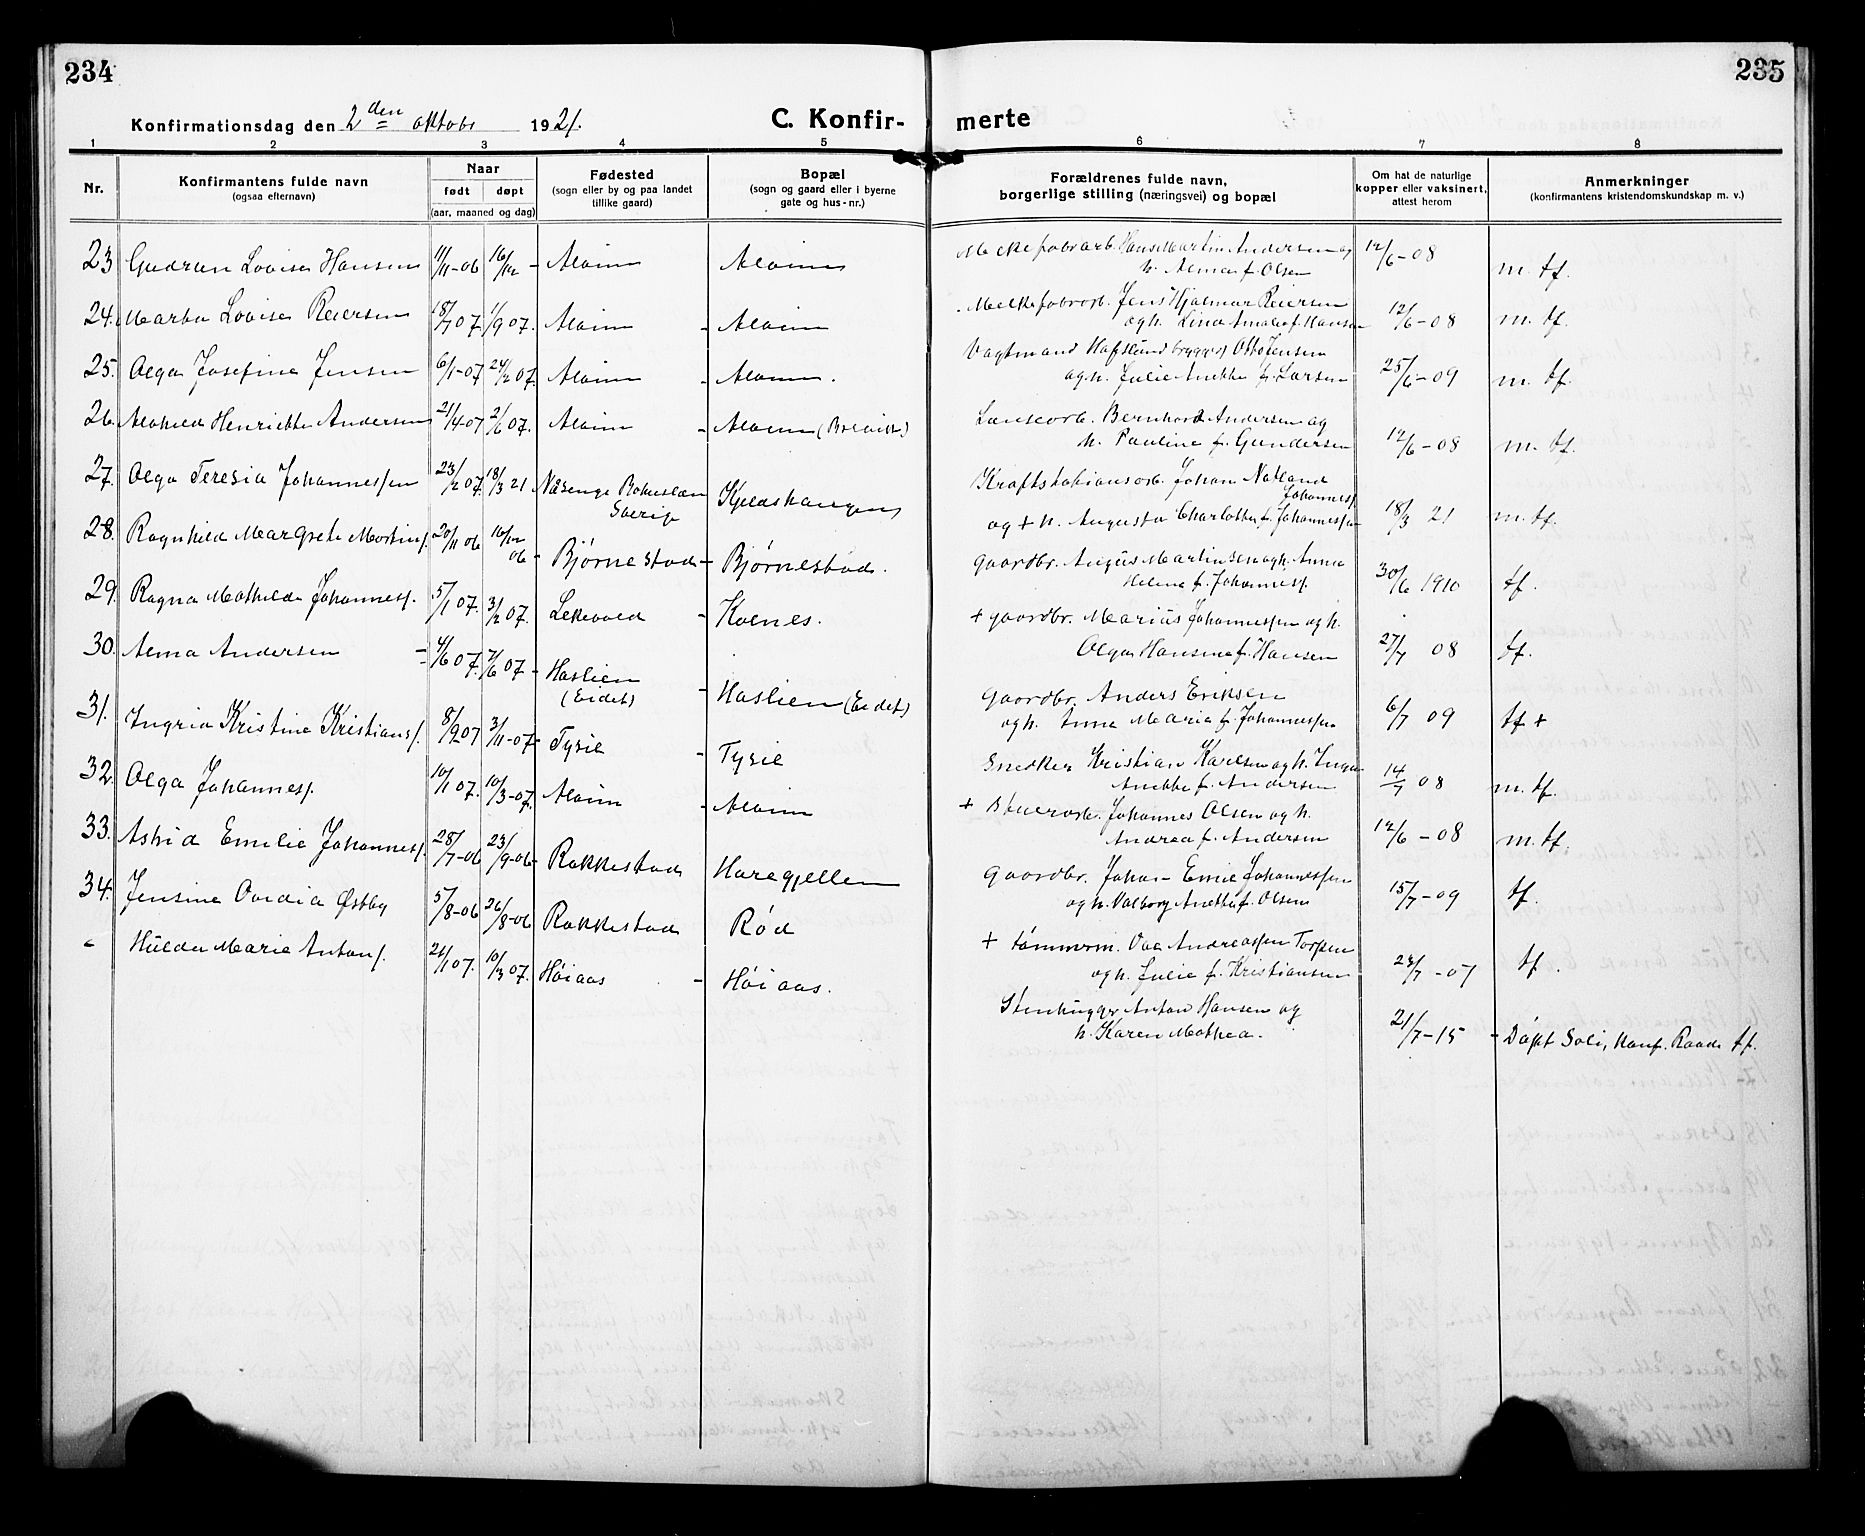 234
Konfirmationsdag den 2den oktobr 1921.
C. Konfir-
1 2 3 4 5
Nr.
Konfirmantens fulde navn
(ogsaa efternavn)
Naar
født døpt
(aar, maaned og dag)
Fødested
(sogn eller by og paa landet
tillike gaard)
Bopæl
(sogn og gaard eller i byerne
gate og hus-nr.)
23 Gudrun Lovise Hansen 11/11-06 16/12 -
24. Martha Lovise Reiersen 18/7 07. 1/9 07.
25. Olga Josefine Jensen 6/1-07 24/2 07.
26. Henriette Andersen 21/4-07 2/6 07.
27. Olga Teresia Johannessen 23/2 07. 18/3 21 Näsenge Bohuslän
Sverige
28. Ragnhild Margrete Martins. 20/11 06 16/12 06 - Bjørnestad - Bjørnestad.
29. Ragna Mathilde Johannes. 5/1 07. 3/2 07. - Kolnes.
30. Alma Andersen 4/6 07. 7/6 07 - Haslien
(Eidet) - Haslien (Eidet)
31. Ingrid Kristine Kristians. 8/9 07 3/11-07 -
32. Olga Johannes. 10/1 07. 10/3-07.
33. Astrid Emilie Johannes. 28/7-06 23/9-06 - Rakkestad Haregjellen
34. Jensine Ovidia Østby 5/8-06 26/8-06 Rakkestad Rød
" Hulda Marie Antons. 21/1 07. 10/3 07. Höiaas - Höiaas.
235
merte
6 7 8
Forældrenes fulde navn,
borgerlige stilling (næringsvei) og bopæl
Om hat de naturlige
kopper eller vaksinert,
attest herom
Anmerkninger
(konfirmantens kristendomskundskap m. v.)
Melkefabrarb. Hans Martin Andersen og
h. Alma f. Olsen 12/6-08 m. tf.
Melkefabrarb. Jens Hjalmar Reiersen
og h. Lina Amalie f. Hansen 12/6-08 m. tf.
Vagtmand Hafslund brygge Otto Jensen
og h. Julie Anette f. Larsen 25/6-09 m. tf.
Lensearb. Bernhard Andersen og
h. Pauline f. Gundersen 12/6-08 m. tf.
Kraftstationsarb. Johan Natland
Johanness.
og + h. Augusta Charlotte f. Johannessen 18/3 21 m. tf.
Gaardbr. August Martinsen og h. Anna
Helene f. Johannes. 30/6 1910 tf.
+ gaardbr. Marius Johannessen og h.
Olga Hansine f. Hansen 27/7 08 tf.
Gaardbr. Anders Eriksen
og h. Anna Maria f. Johannessen 6/7 09 tf +
Snedker Kristian Karlsen og h. Inga
Anette f. Andersen 14/7 08 m. tf.
+ Johannes Olsen og h.
Andrea f. Andersen 12/6-08 m. tf.
Gaardbr. Johan Emil Johannessen
og h. Valborg Anette f. Olsen 15/7-09 tf.
+ tømmerm. Andreassen
og h. Julie f. Kristiansen 23/7-07 tf.
Stenhugger Anton Hansen og
h. Karen Mathea. 21/7-15 - Døpt Soli, Konf. Raade tf.